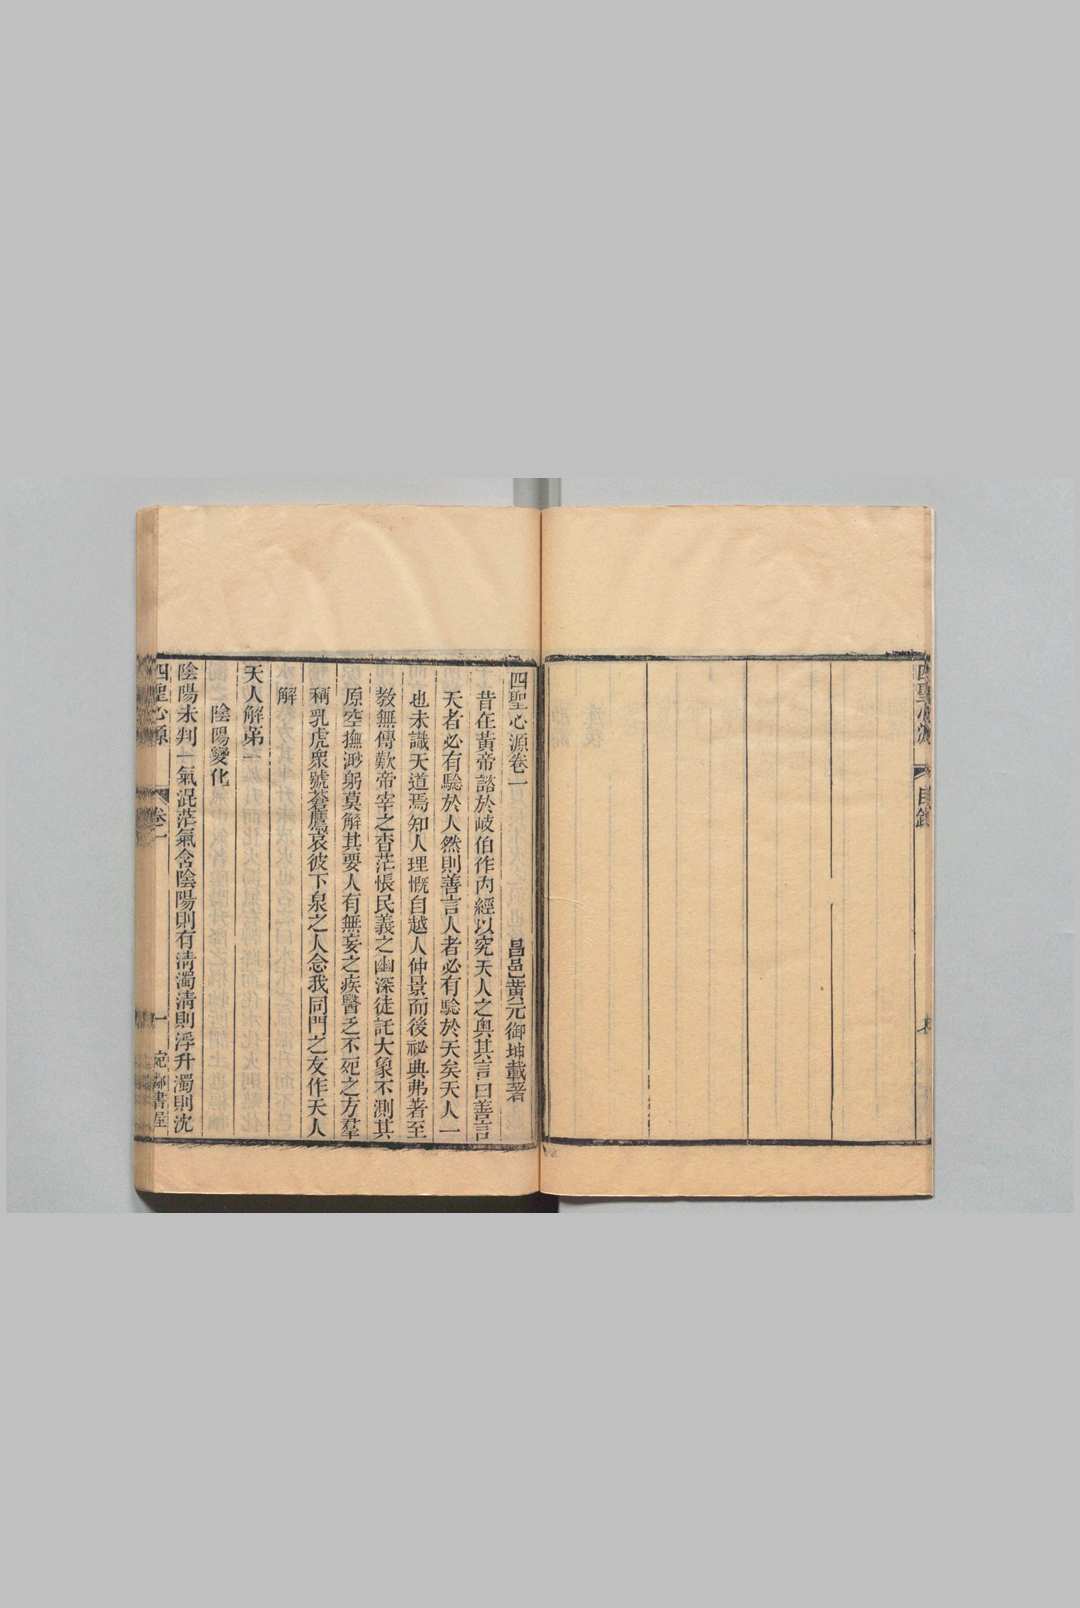 四聖心源
目錄
四聖心源卷一
昌邑黃元御坤載著
昔在黃帝諮於岐伯作內經以究天人之奧其言曰善言
天者必有驗於人然則善言人者必有驗於天矣天人一
也未識天道焉知人理慨自越人仲景而後祕典弗著至
教無傳歎帝宰之杳茫悵民義之幽深徒託大象不測其
原空撫渺躬莫解其要人有無妄之疾醫乏不死之方羣
稱乳虎眾號蒼鷹哀彼下泉之人念我同門之友作天人
解
天人解弟一
陰陽變化
陰陽未判一氣混茫氣含陰陽則有清濁清則浮升濁則沈
四聖心源
卷一
一
宛鄰書屋